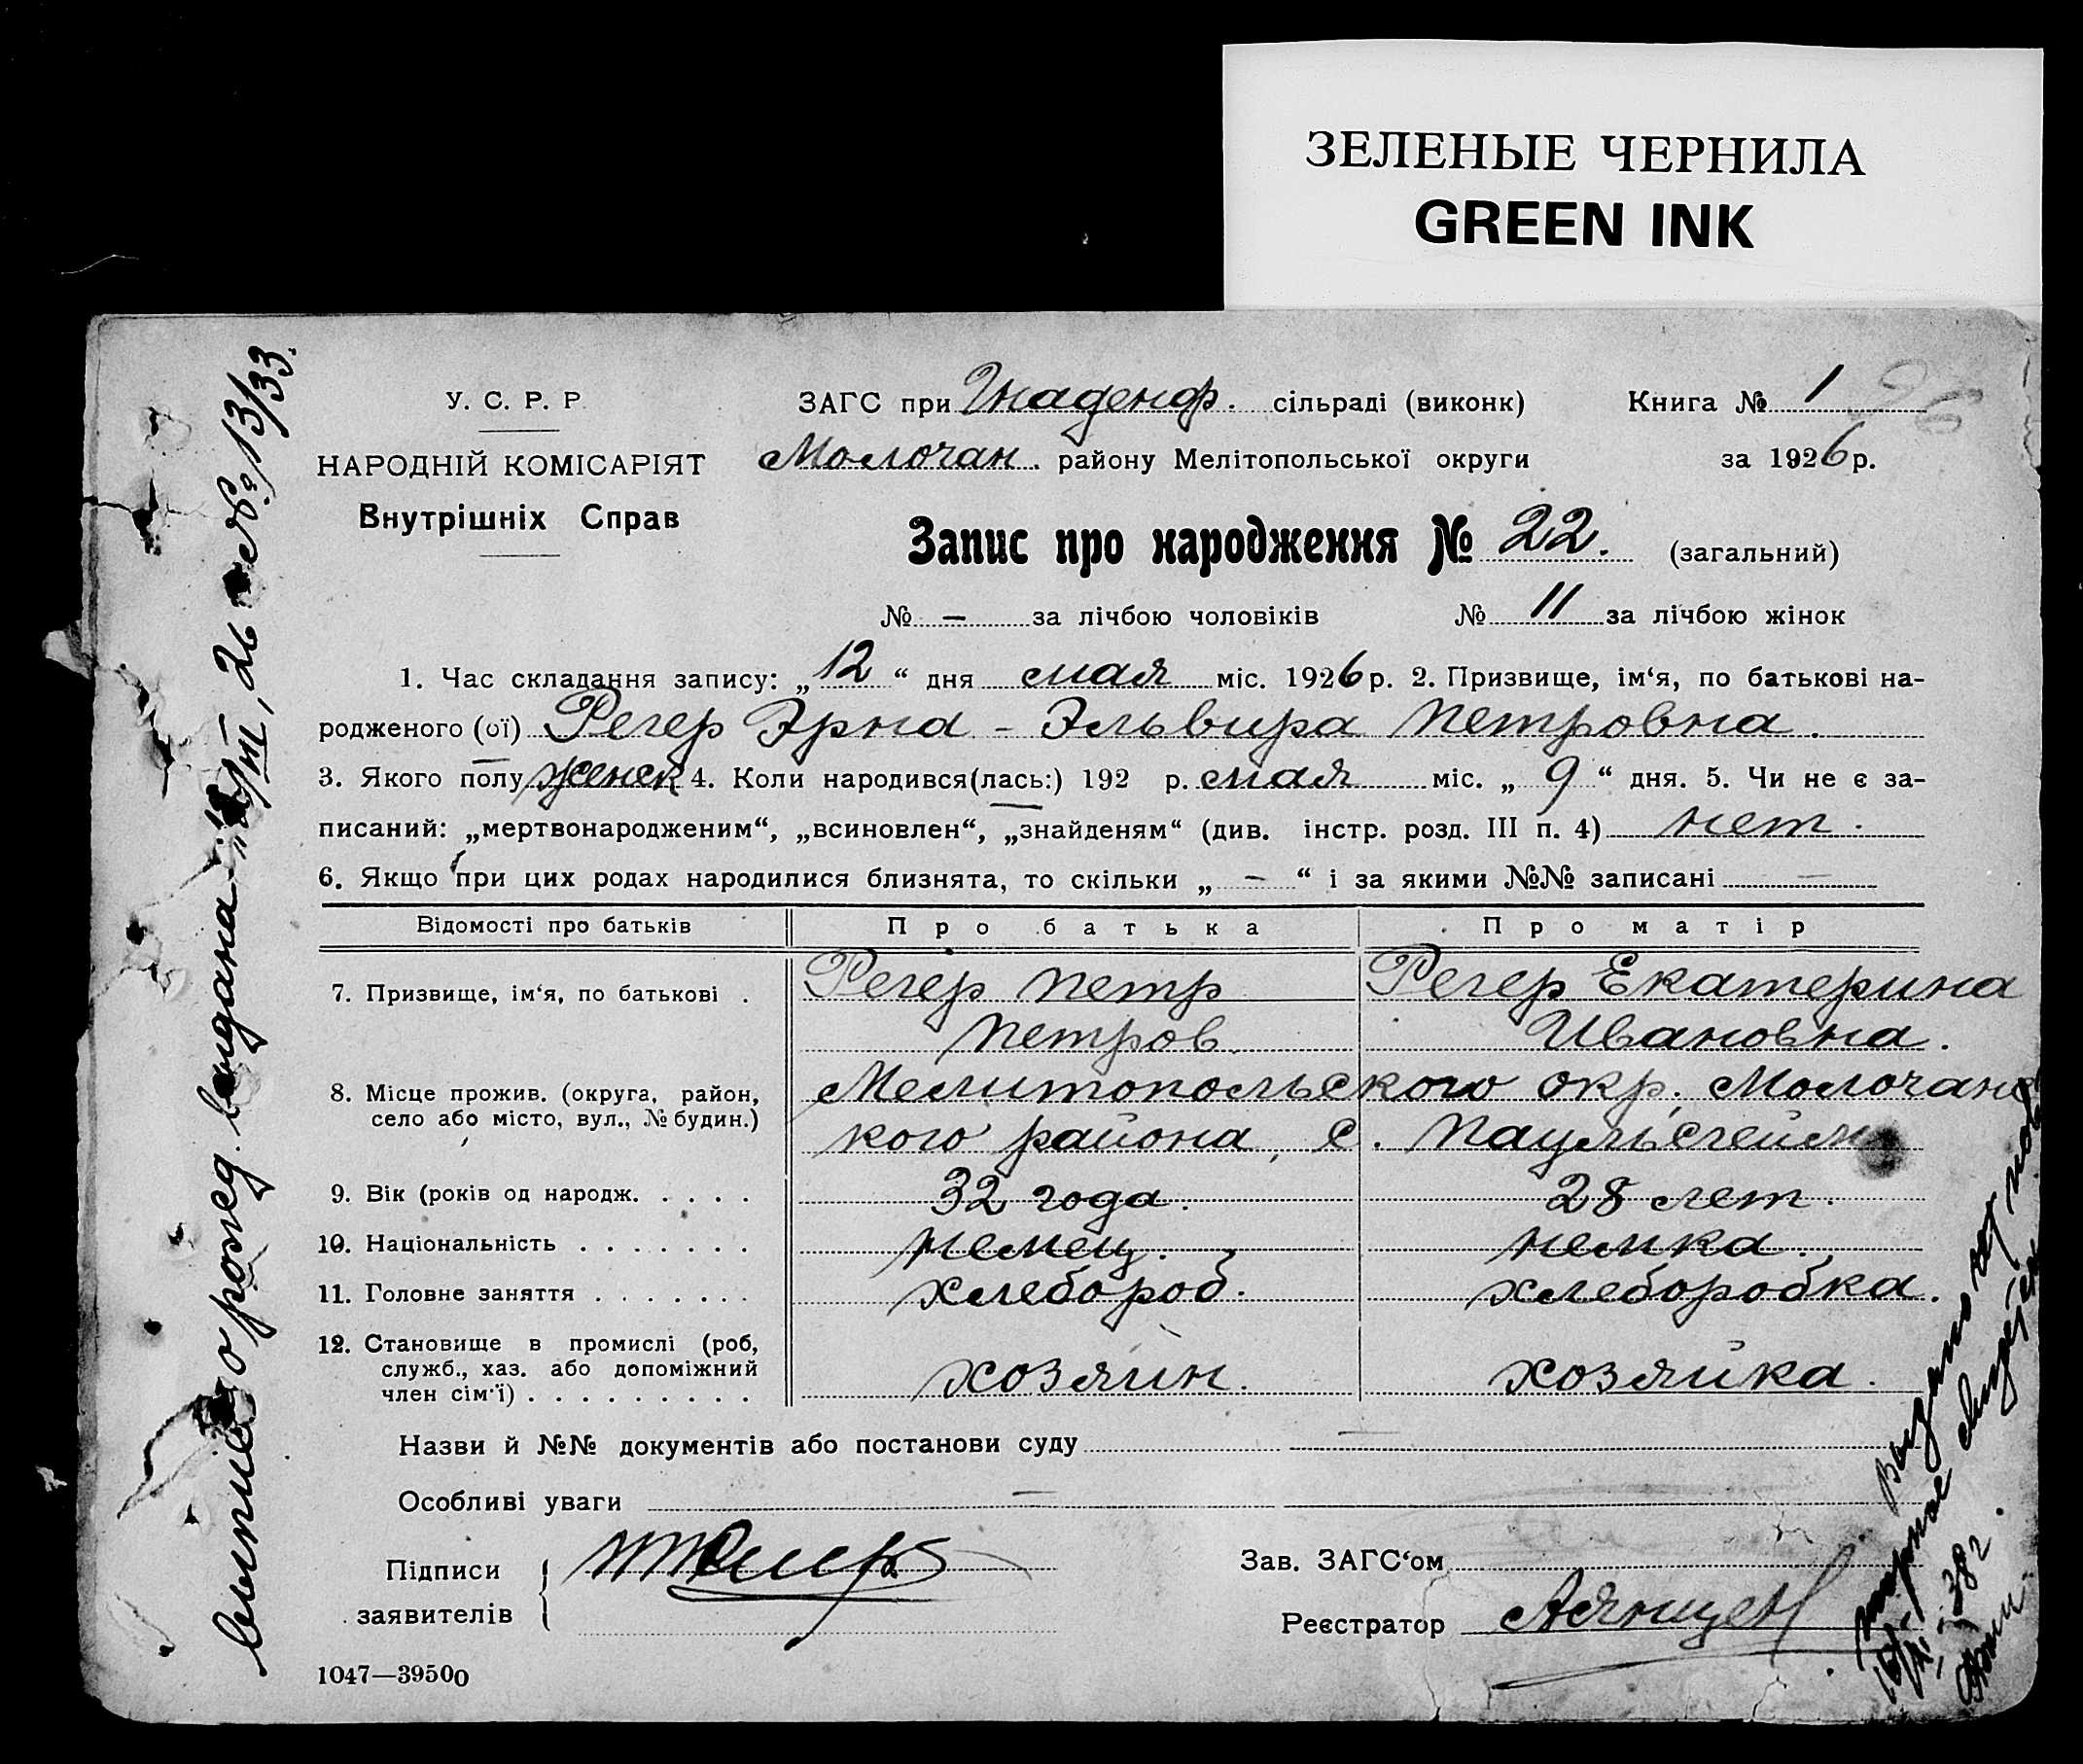 ЗЕЛЕНЫЕ ЧЕРНИЛА
GREEN INK
У. С. Р. Р.
НАРОДНІЙ КОМІСАРІЯТ
Внутрішніх Справ
ЗАГС при Гнаденф. сільраді (виконк)
Молочан. району Мелітопольської округи
Книга № 1
96
за 1926 р.
Запис про народження № 22. (загальний)
№ – за лічбою чоловіків № 11 за лічбою жінок
1. Час складання запису: „12“ дня мая міс. 1926 р. 2. Призвище, ім‘я, по батькові на-
родженого (ої) Регер Эрна - Эльвира Петровна.
3. Якого полу женск 4. Коли народився(лась:) 192 р. мая міс. „9“ дня. 5. Чи не є за-
писаний: „мертвонародженим“, „всиновлен“, „знайденям“ (див. інстр. розд. III п. 4) нет.
6. Якщо при цих родах народилися близнята, то скільки „ – “ і за якими №№ записані –
Відомості про батьків Про батька Про матір
7. Призвище, ім‘я, по батькові . Регер Петр Регер Екатерина
Петров. Ивановна.
8. Місце прожив. (округа, район, Мелитопольского окр. Молочанс
село або місто, вул., № будин.) кого района, с. Паульсгейм
9. Вік (років од народж. . . . . 32 года. 28 лет.
10. Національність . . . . . . . немец. немка.
11. Головне заняття . . . . . . . хлебороб. хлеборобка.
12. Становище в промислі (роб,
служб., хаз. або допоміжний хозяин. хозяйка.
член сім‘ї) . . . . . . . . .
Назви й №№ документів або постанови суду —
Особливі уваги —
Підписи
заявителів
Зав. ЗАГС‘ом
Реєстратор
1047—39500
выпись о рожд. выдана III, 26 №13/33.
Выдано
повторное свидет
38 г.